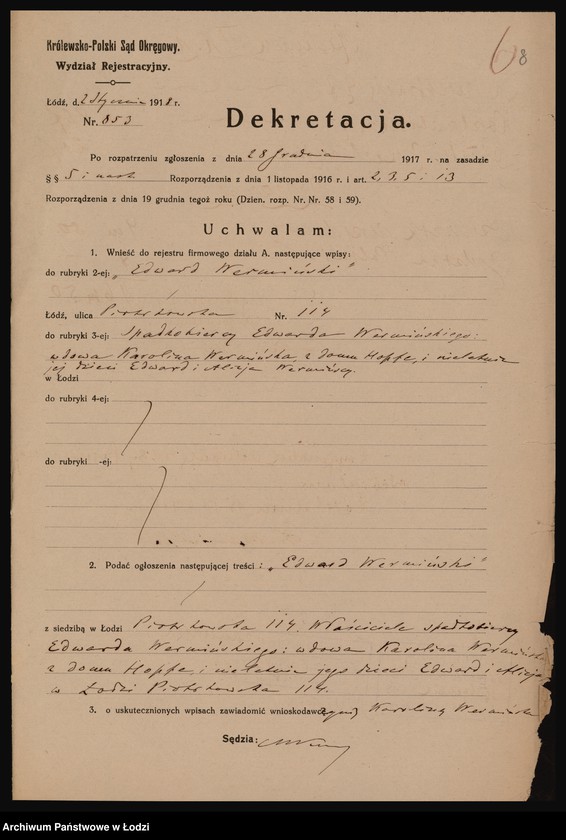 Królewsko-Polski Sąd Okręgowy.
Wydział Rejestracyjny.
6
8
Łódź, d. 2 Stycznia 1918 r.
Nr. 853
Dekretacja.
Po rozpatrzeniu zgłoszenia z dnia 28 Grudnia 1917 r. na zasadzie
§ § 5 i nast. Rozporządzenia z dnia 1 listopada 1916 r. i art. 2, 3, 5 i 13
Rozporządzenia z dnia 19 grudnia tegoż roku (Dzien. rozp. Nr. Nr. 58 i 59).
Uchwalam:
1. Wnieść do rejestru firmowego działu A. następujące wpisy:
do rubryki 2-ej: „Edward Wermiński"
Łódź, ulica Piotrkowska Nr. 114
do rubryki 3-ej: Spadkobiercy Edwarda Wermińskiego:
wdowa Karolina Wermińska z domu Hoppe, i nieletnie
jej dzieci Edward i Alicja Wermińscy.
w Łodzi
do rubryki 4-ej:
do rubryki -ej:
2. Podać ogłoszenia następującej treści: „Edward Wermiński"
z siedzibą w Łodzi Piotrkowska 114. Właściciele spadkobiercy
Edwarda Wermińskiego: wdowa Karolina Wermińska
z domu Hoppe, i nieletnie jego dzieci Edward i Alicja
w Łodzi Piotrkowska 114.
3. o uskutecznionych wpisach zawiadomić wnioskodawczynię Karolinę Wermińską
Sędzia:
Archiwum Państwowe w Łodzi